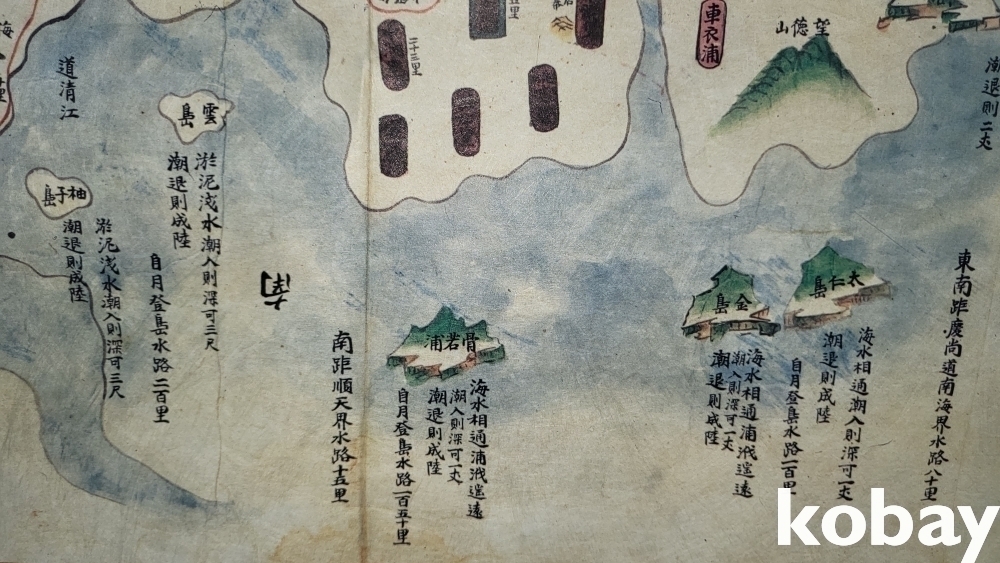 東南距慶尚道南海界水路八十里
潮退則二丈
太仁島
海水相通潮入則深可一丈
潮退則成陸
自月登島水路一百里
望德山
車衣浦
金島
海水相通浦渽遥遠
潮入則深可一丈
潮退則成陸
骨若浦
海水相通浦渽遥遠
潮入則深可一丈
潮退則成陸
自月登島水路一百五十里
二十三里
五里
南距順天界水路十五里
南
雲島
淤泥浅水潮入則深可三尺
潮退則成陸
自月登島水路二百里
柚子島
淤泥浅水潮入則深可三尺
潮退則成陸
道清江
kobay